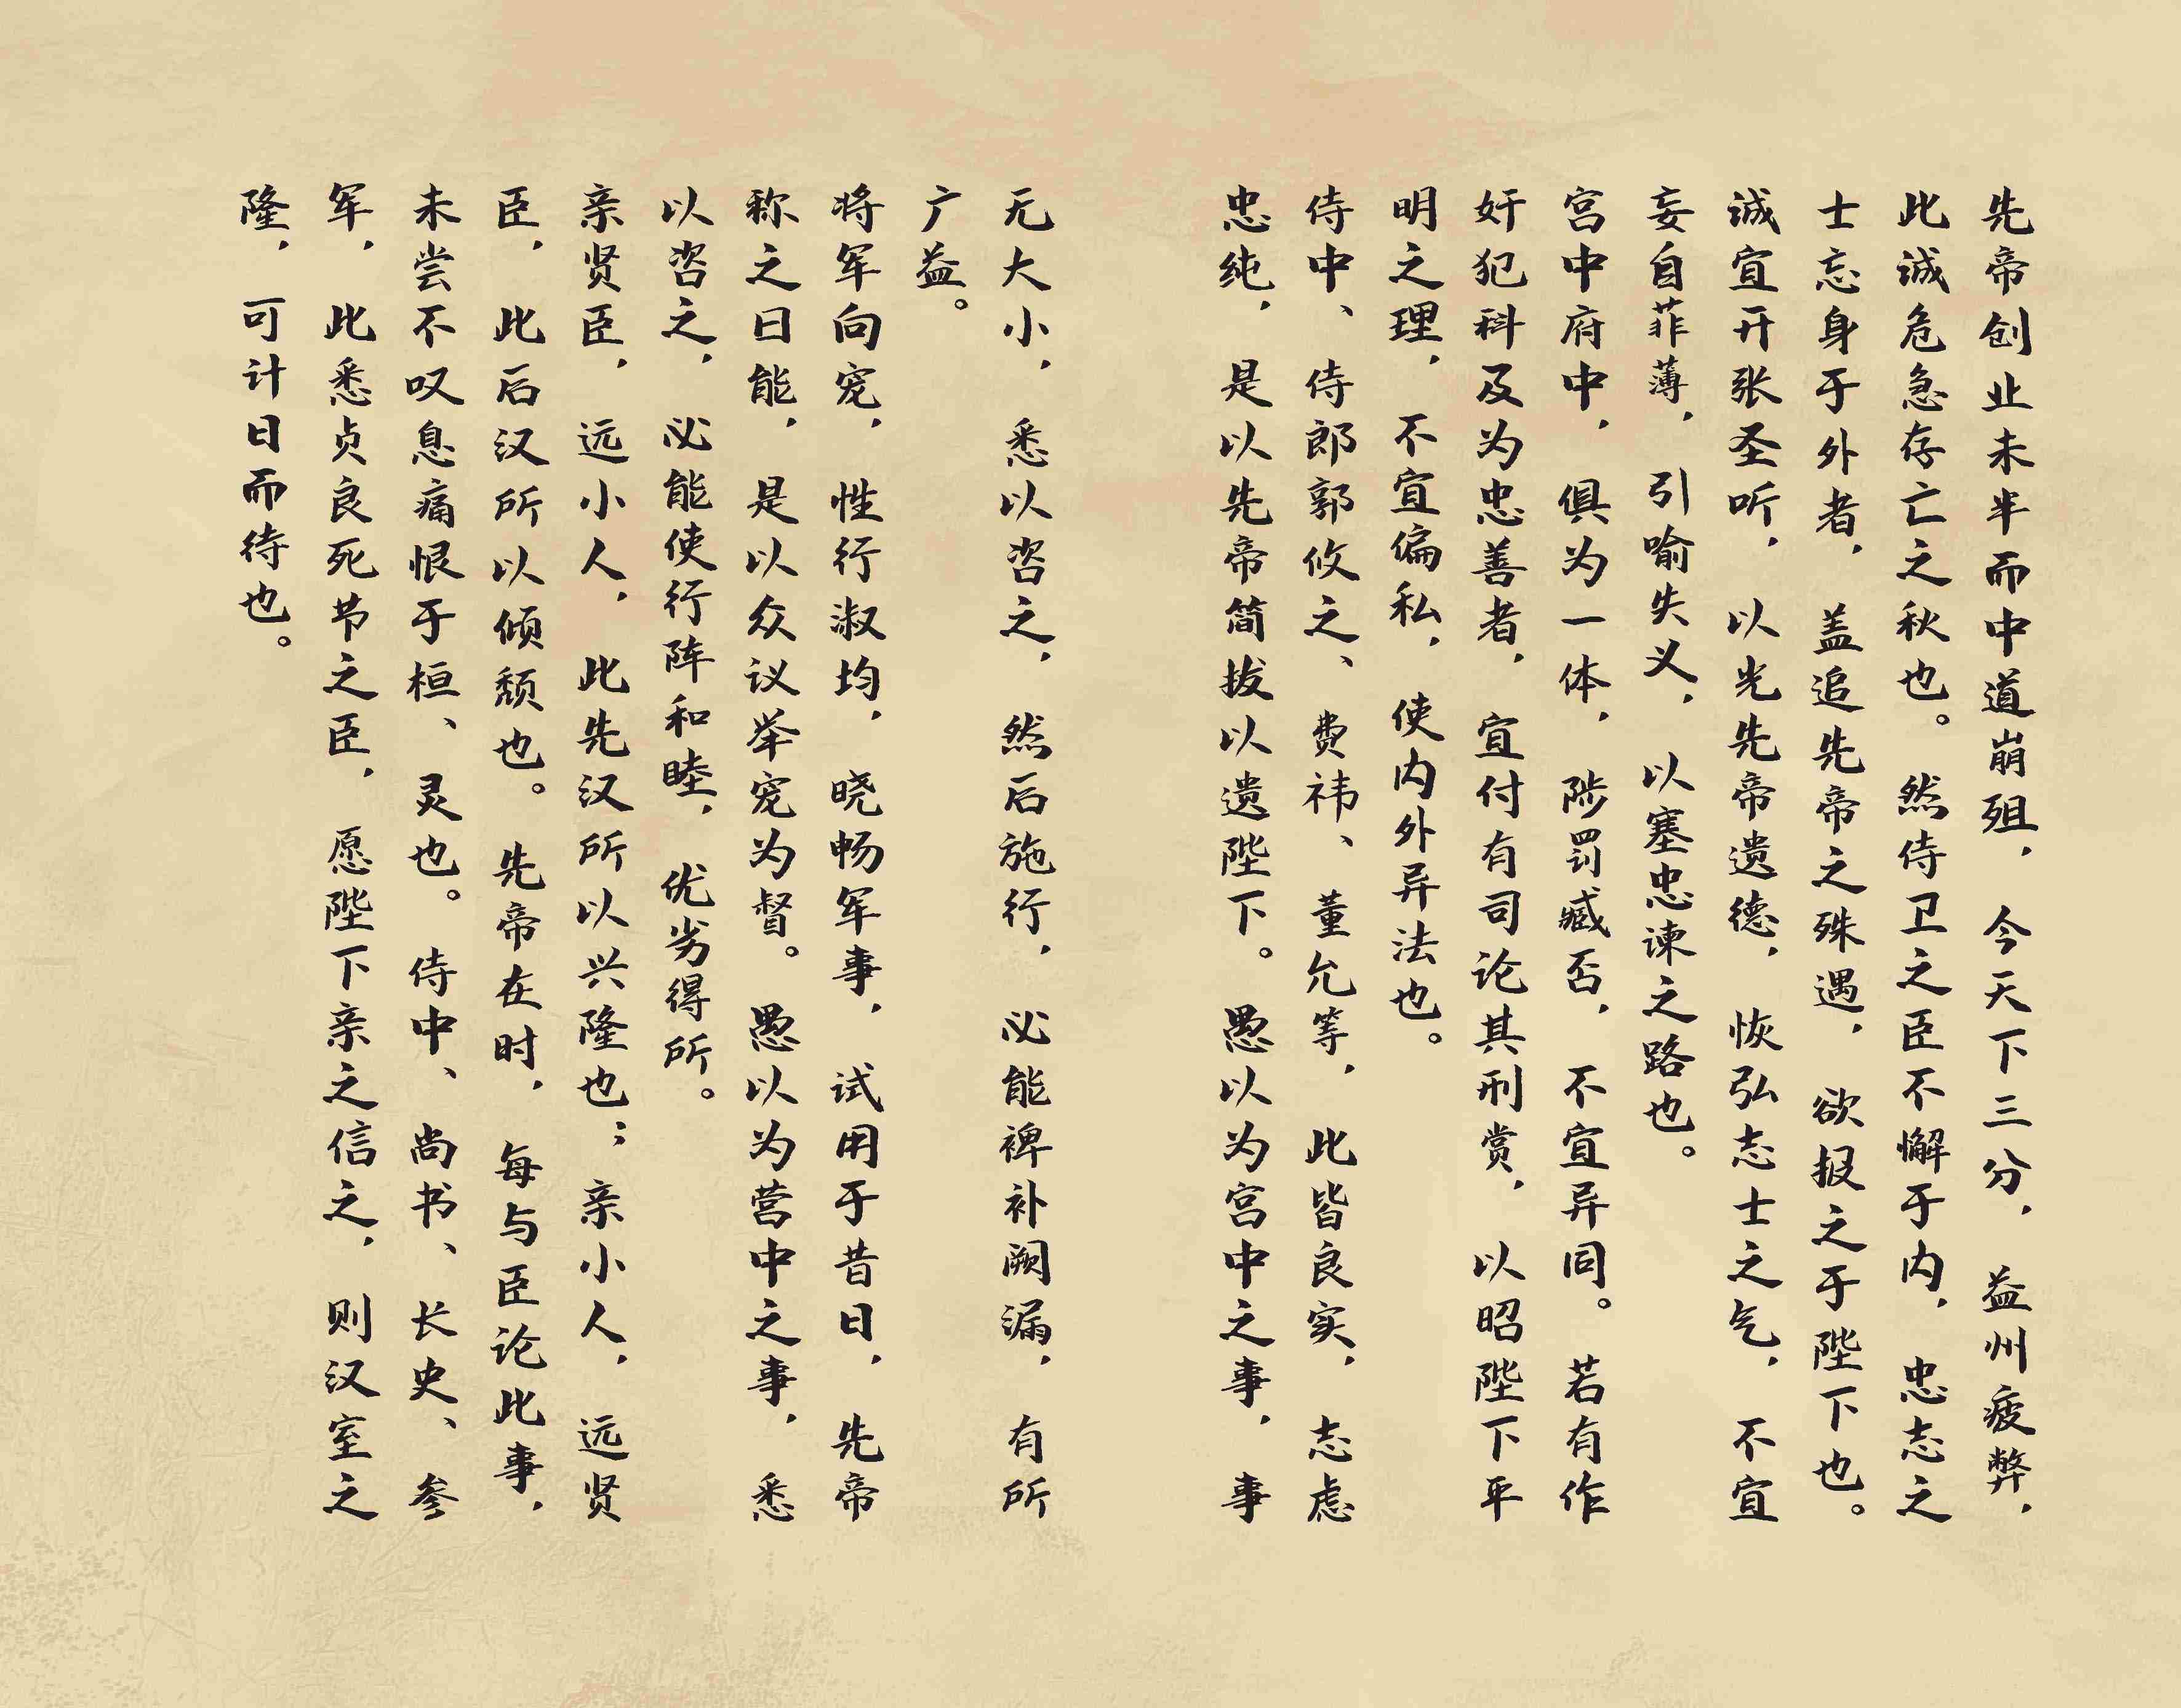 先帝创业未半而中道崩殂，今天下三分，益州疲弊，
此诚危急存亡之秋也。然侍卫之臣不懈于内，忠志之
士忘身于外者，盖追先帝之殊遇，欲报之于陛下也。
诚宜开张圣听，以光先帝遗德，恢弘志士之气，不宜
妄自菲薄，引喻失义，以塞忠谏之路也。
宫中府中，俱为一体，陟罚臧否，不宜异同。若有作
奸犯科及为忠善者，宜付有司论其刑赏，以昭陛下平
明之理，不宜偏私，使内外异法也。
侍中、侍郎郭攸之、费祎、董允等，此皆良实，志虑
忠纯，是以先帝简拔以遗陛下。愚以为宫中之事，事
无大小，悉以咨之，然后施行，必能裨补阙漏，有所
广益。
将军向宠，性行淑均，晓畅军事，试用于昔日，先帝
称之曰能，是以众议举宠为督。愚以为营中之事，悉
以咨之，必能使行阵和睦，优劣得所。
亲贤臣，远小人，此先汉所以兴隆也；亲小人，远贤
臣，此后汉所以倾颓也。先帝在时，每与臣论此事，
未尝不叹息痛恨于桓、灵也。侍中、尚书、长史、参
军，此悉贞良死节之臣，愿陛下亲之信之，则汉室之
隆，可计日而待也。